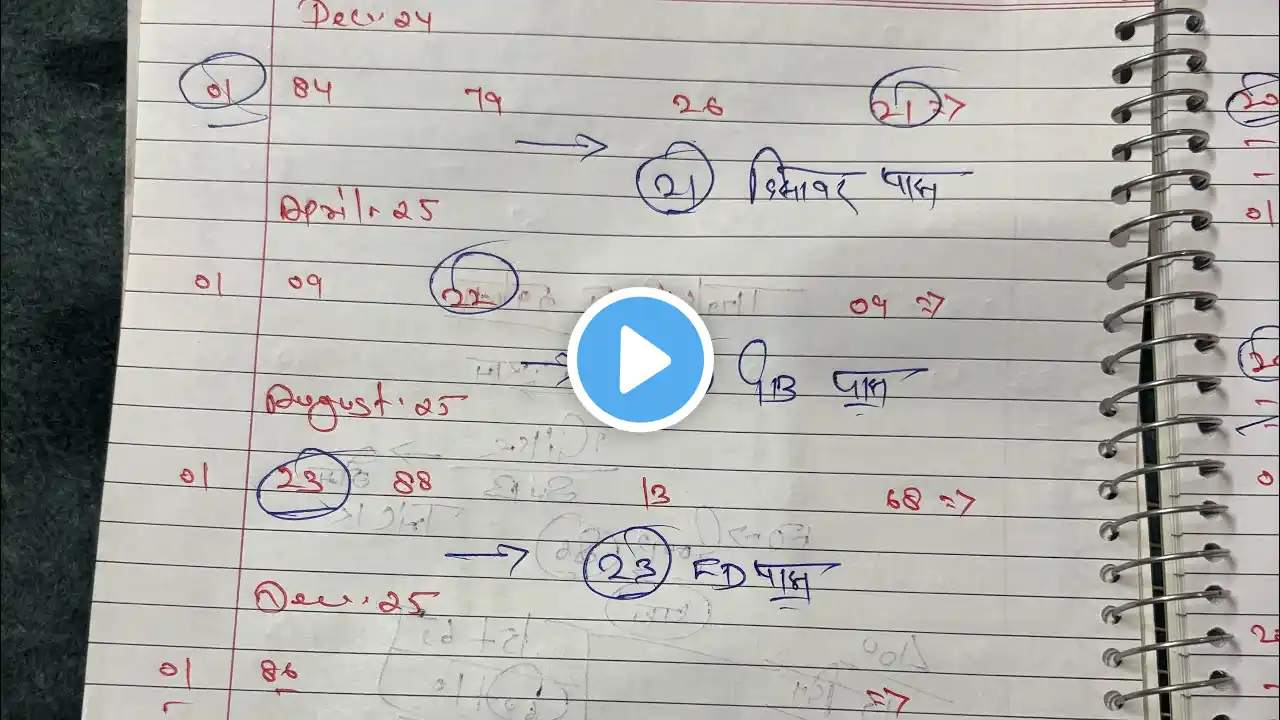 Dec. 24
01 84 79 26 21 => 20
→ 21 दिसावर पास
April. 25
01
01 09 22 09 =>
→ GB पास
August. 25
01 23 88 13 68 =>
→ 23 FD पास
Dec. 25
01 86 =>